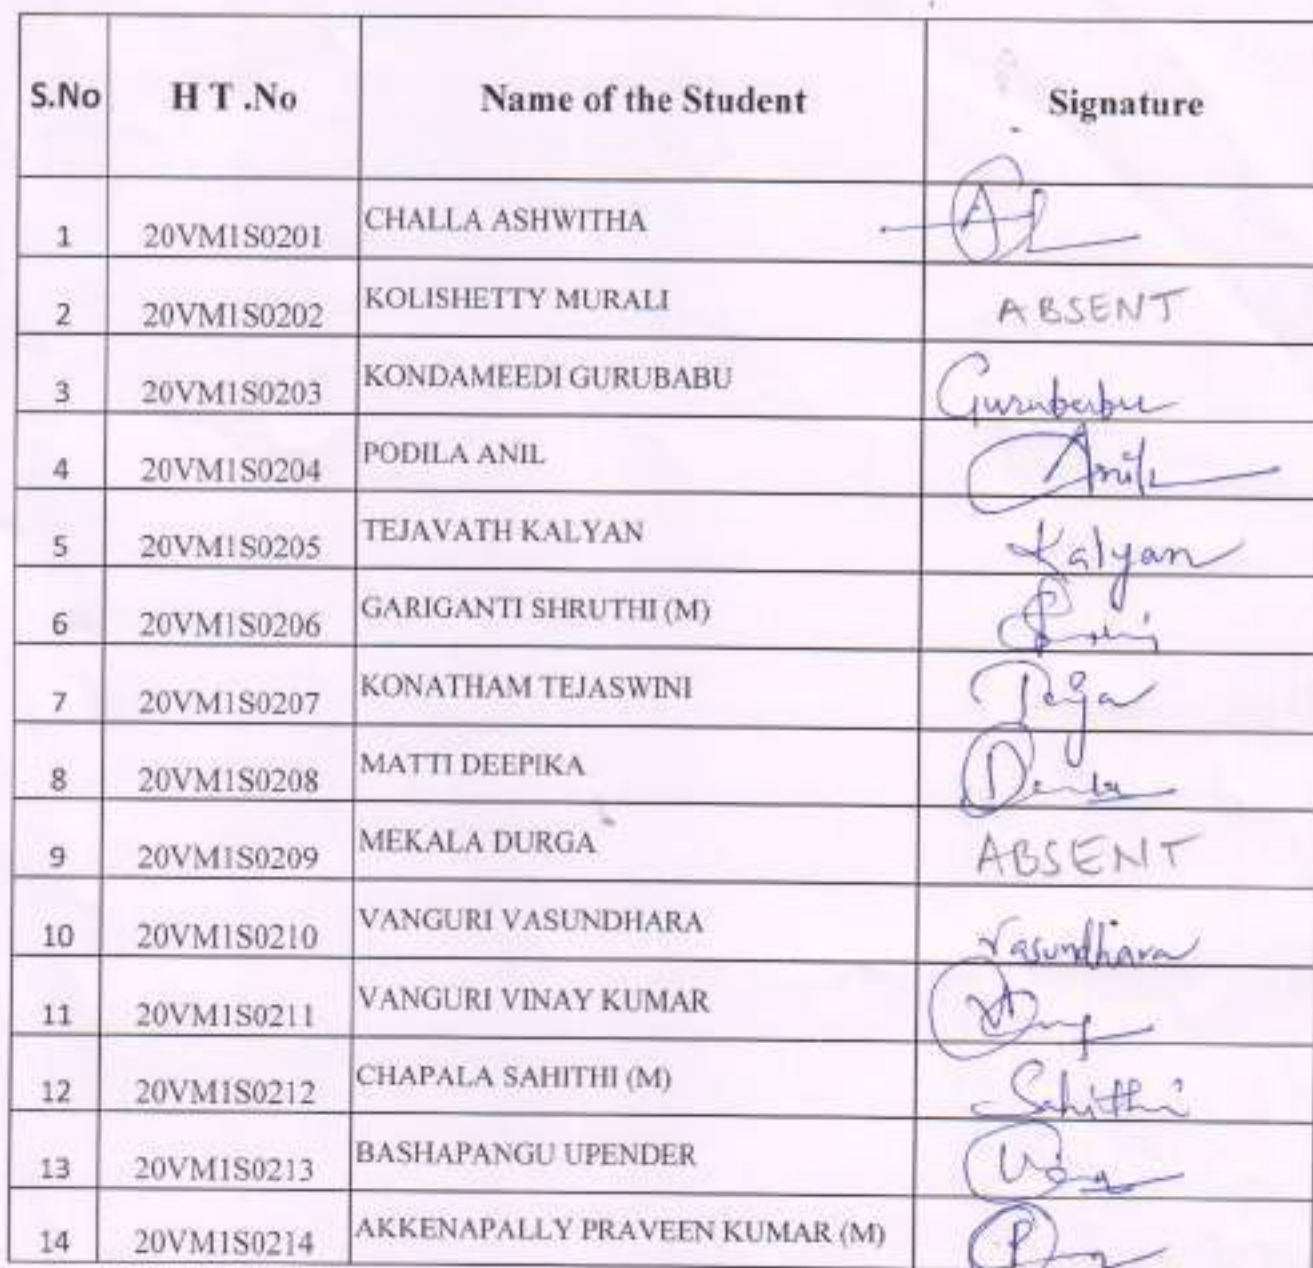 S.No H T .No Name of the Student Signature
1 20VM1S0201 CHALLA ASHWITHA
2 20VM1S0202 KOLISHETTY MURALI ABSENT
3 20VM1S0203 KONDAMEEDI GURUBABU Gurubabu
4 20VM1S0204 PODILA ANIL Anil
5 20VM1S0205 TEJAVATH KALYAN Kalyan
6 20VM1S0206 GARIGANTI SHRUTHI (M)
7 20VM1S0207 KONATHAM TEJASWINI Teja
8 20VM1S0208 MATTI DEEPIKA
9 20VM1S0209 MEKALA DURGA ABSENT
10 20VM1S0210 VANGURI VASUNDHARA Vasundhara
11 20VM1S0211 VANGURI VINAY KUMAR
12 20VM1S0212 CHAPALA SAHITHI (M) Sahithi
13 20VM1S0213 BASHAPANGU UPENDER
14 20VM1S0214 AKKENAPALLY PRAVEEN KUMAR (M)